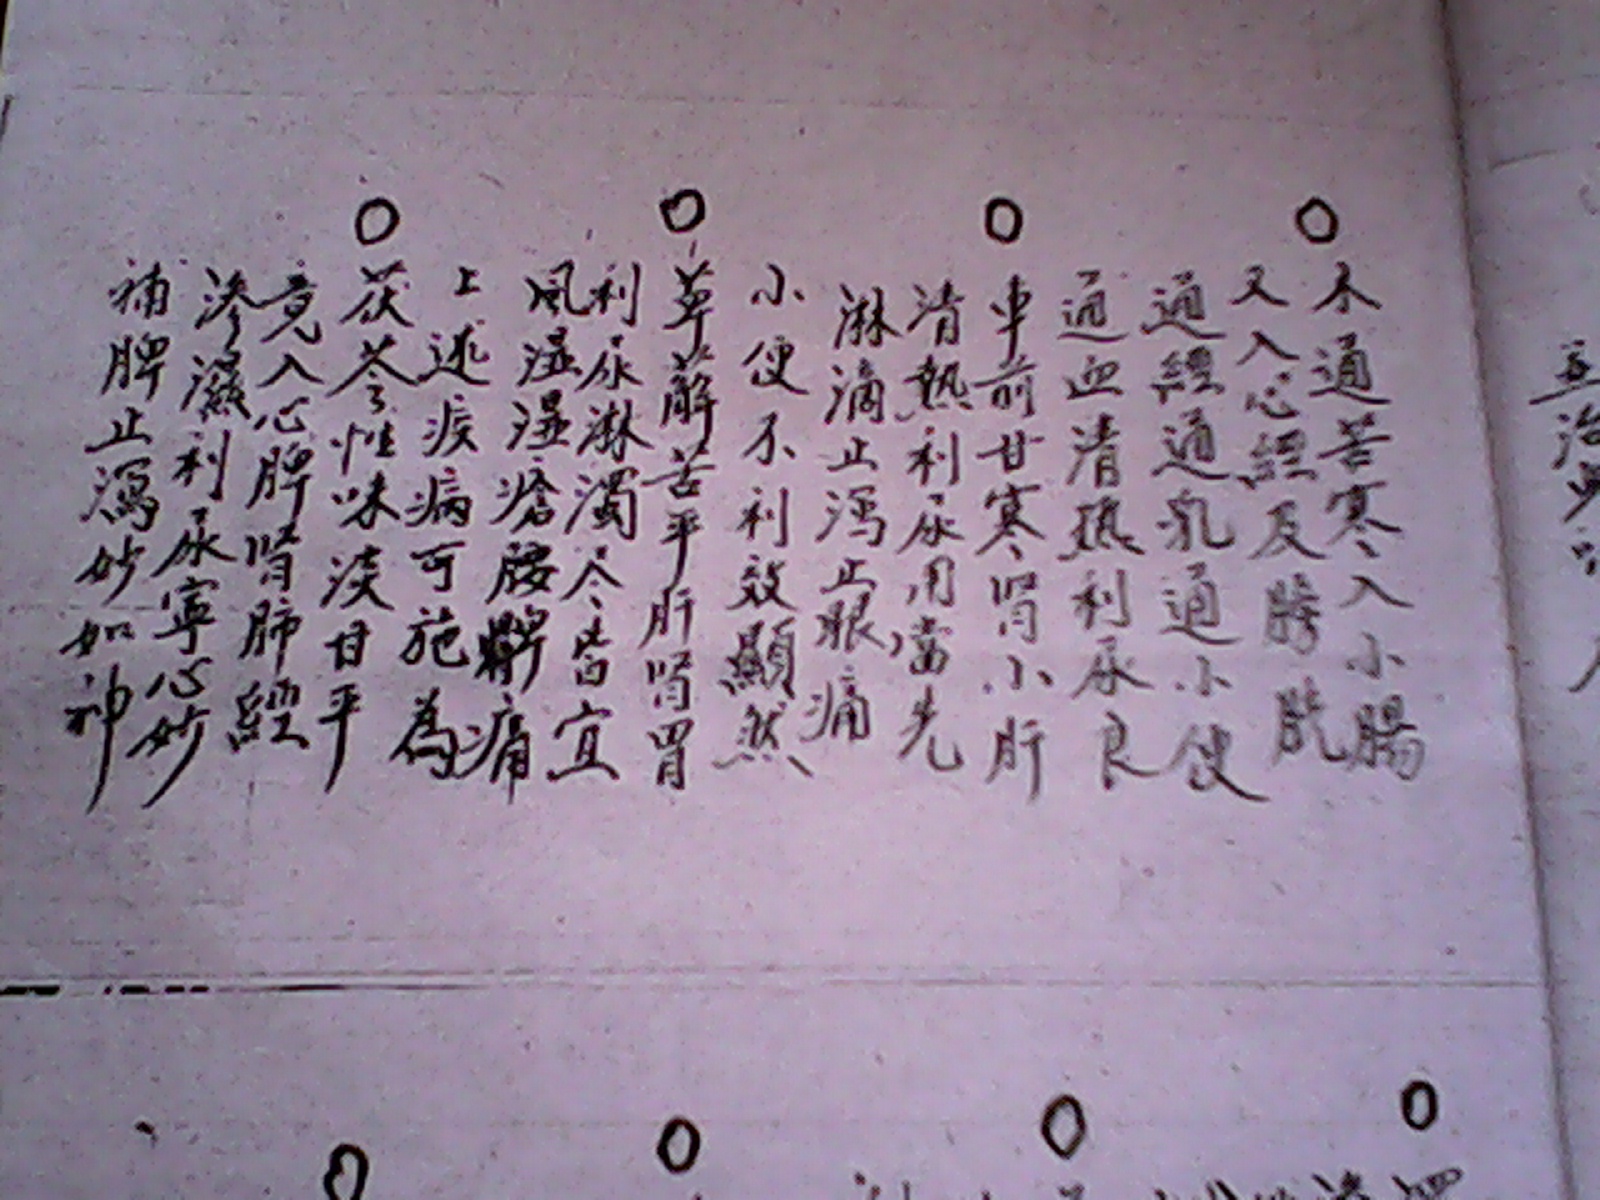 ○木通苦寒入小腸
又入心經及膀胱
通經通乳通小便
通血清热利尿良
○車前甘寒肾小肝
清熱利尿用當先
淋滴止泻止眼痛
小便不利效顯然
○萆薢苦平肝肾胃
利尿淋濁尽皆宜
風湿湿瘡腰髀痛
上述疾病可施為
○茯苓性味淡甘平
竟入心脾肾肺經
滲濕利尿寧心妙
補脾止瀉妙如神